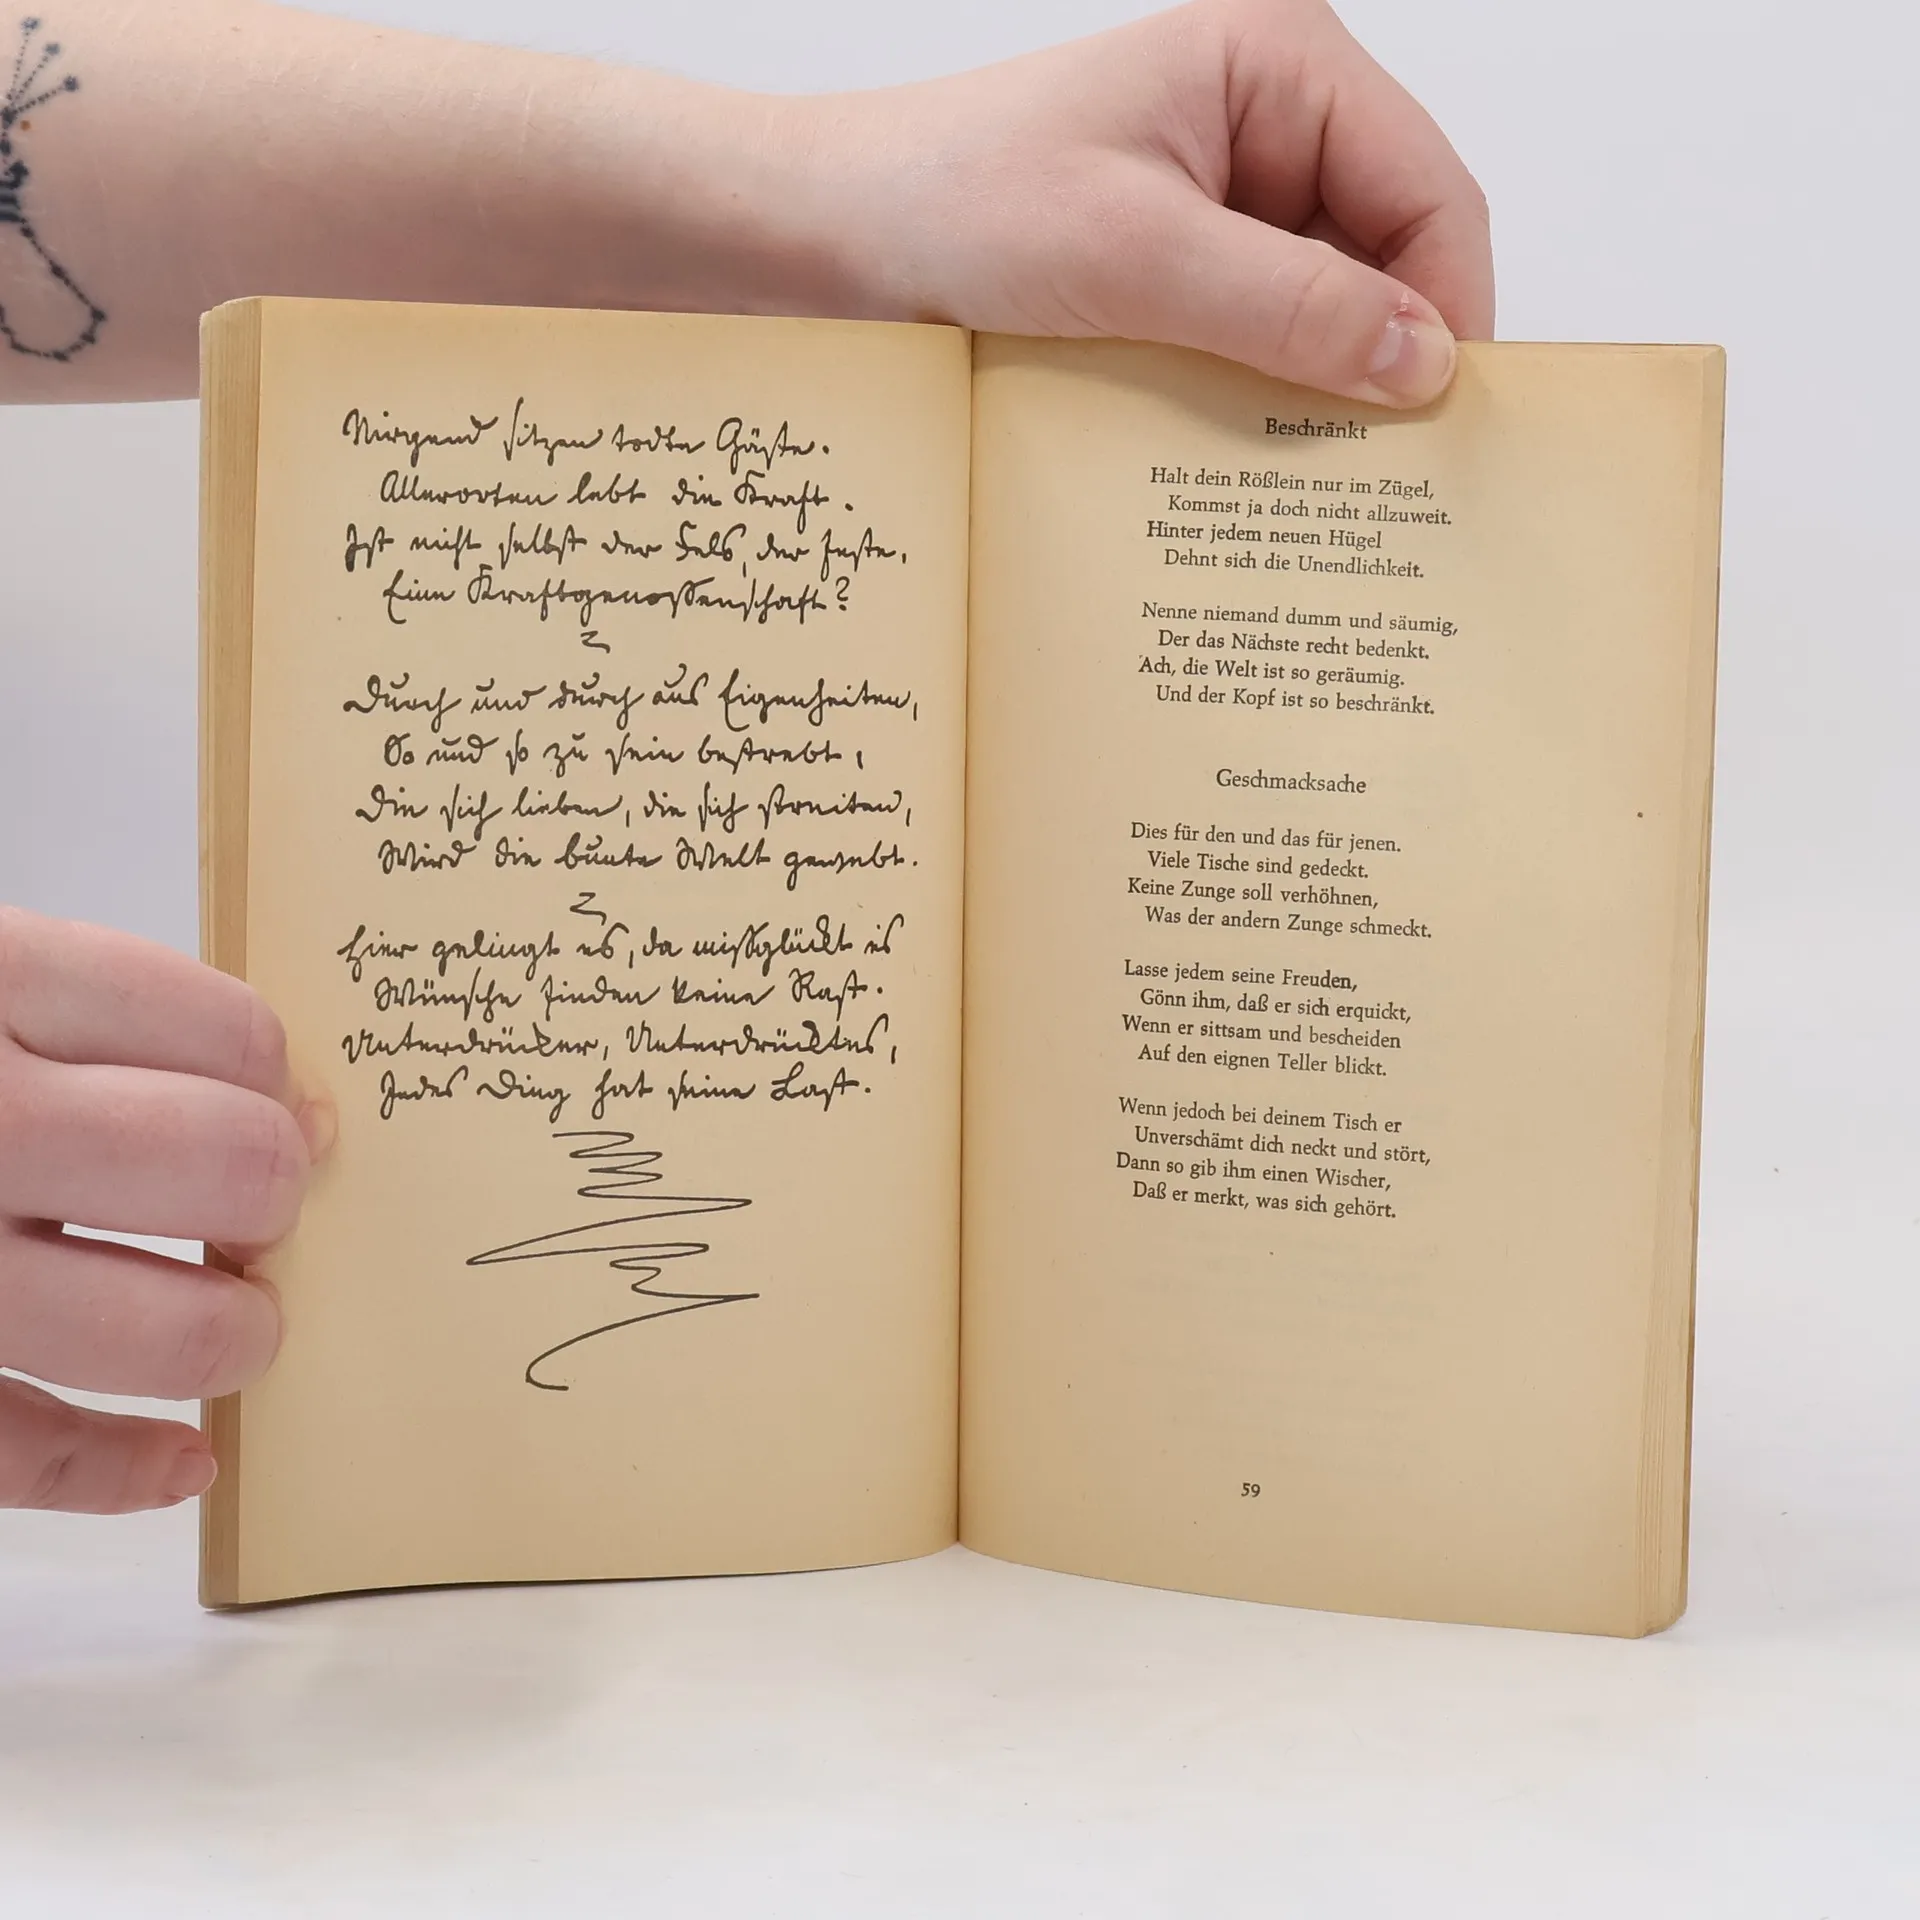 Nirgend sitzen todte Gäste.
Allerorten lebt die Kraft.
Ist nicht selbst der Fels, der feste,
Eine Kraftgenossenschaft?
Durch und durch aus Eigenheiten,
So und so zu sein bestrebt,
Die sich lieben, die sich streiten,
Wird die bunte Welt gewebt.
Hier gelingt es, da missglückt es
Wünsche finden keine Rast.
Unterdrücker, Unterdrücktes,
Jedes Ding hat seine Last.
Beschränkt
Halt dein Rößlein nur im Zügel,
Kommst ja doch nicht allzuweit.
Hinter jedem neuen Hügel
Dehnt sich die Unendlichkeit.
Nenne niemand dumm und säumig,
Der das Nächste recht bedenkt.
Ach, die Welt ist so geräumig.
Und der Kopf ist so beschränkt.
Geschmacksache
Dies für den und das für jenen.
Viele Tische sind gedeckt.
Keine Zunge soll verhöhnen,
Was der andern Zunge schmeckt.
Lasse jedem seine Freuden,
Gönn ihm, daß er sich erquickt,
Wenn er sittsam und bescheiden
Auf den eignen Teller blickt.
Wenn jedoch bei deinem Tisch er
Unverschämt dich neckt und stört,
Dann so gib ihm einen Wischer,
Daß er merkt, was sich gehört.
59